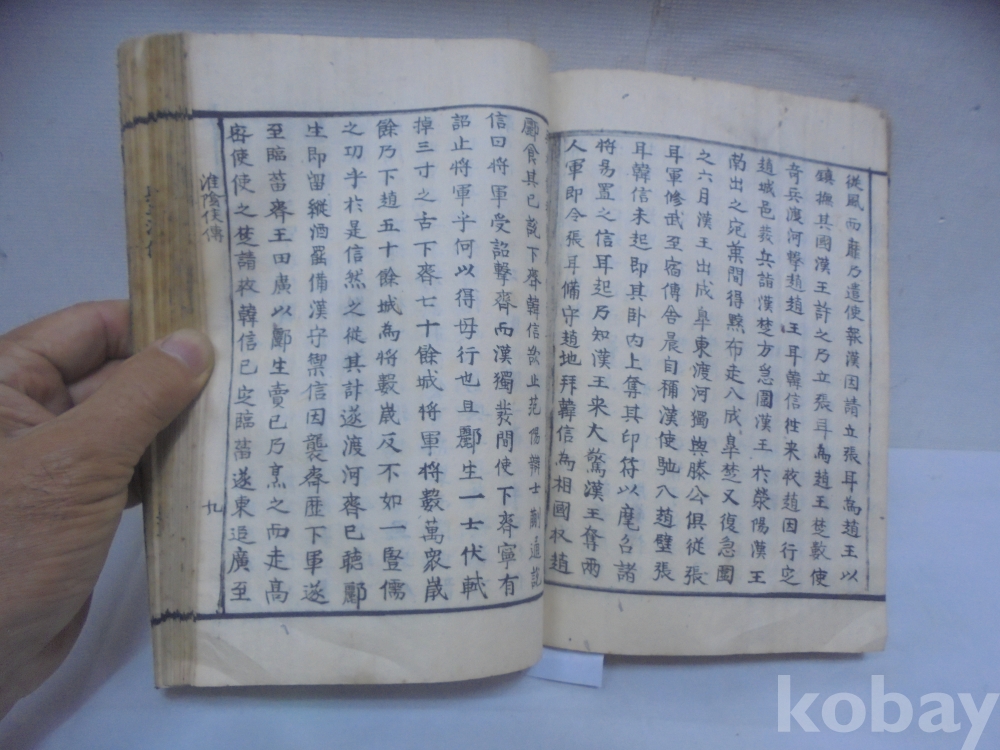 從風而靡乃遣使報漢因請立張耳為趙王以
鎮撫其國漢王許之乃立張耳為趙王楚數使
奇兵渡河擊趙趙王耳韓信往来救趙因行定
趙城邑發兵詣漢楚方急圍漢王於滎陽漢王
南出之宛葉間得黥布走入成皐楚又復急圍
之六月漢王出成皐東渡河獨與滕公俱從張
耳軍修武至宿傳舍晨自稱漢使馳入趙壁張
耳韓信未起即其卧內上奪其印符以麾召諸
將易置之信耳起乃知漢王来大驚漢王奪兩
人軍即令張耳備守趙地拜韓信為相國收趙
酈食其已說下齊韓信欲止范陽辯士蒯通說
信曰將軍受詔擊齊而漢獨發間使下齊寧有
詔止將軍乎何以得毋行也且酈生一士伏軾
掉三寸之舌下齊七十餘城將軍將數萬衆歲
餘乃下趙五十餘城為將數歲反不如一豎儒
之功乎於是信然之從其計遂渡河齊已聽酈
生即留縱酒罷備漢守禦信因襲齊歷下軍遂
至臨菑齊王田廣以酈生賣已乃烹之而走高
密使使之楚請救韓信已定臨菑遂東追廣至
淮陰侯傳
kobay